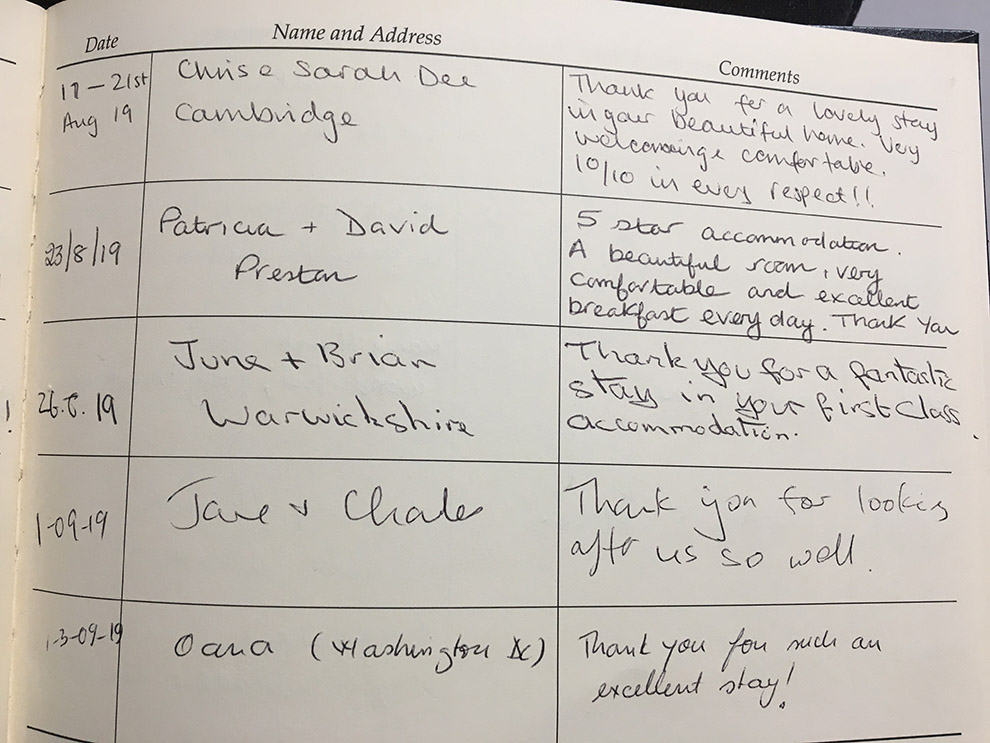 Date Name and Address Comments
17-21st
Aug 19
Chris & Sarah Dee
Cambridge
Thank you for a lovely stay
in your beautiful home. Very
welcoming & comfortable.
10/10 in every respect!!
23/8/19
Patricia + David
Preston
5 star accommodation.
A beautiful room, very
comfortable and excellent
breakfast every day. Thank You
26.8.19
June + Brian
Warwickshire
Thank you for a fantastic
stay in your first class
accommodation.
1-09-19
Jane & Charles
Thank you for looking
after us so well.
1-3-09-19
Oana (Washington DC)
Thank you for such an
excellent stay!